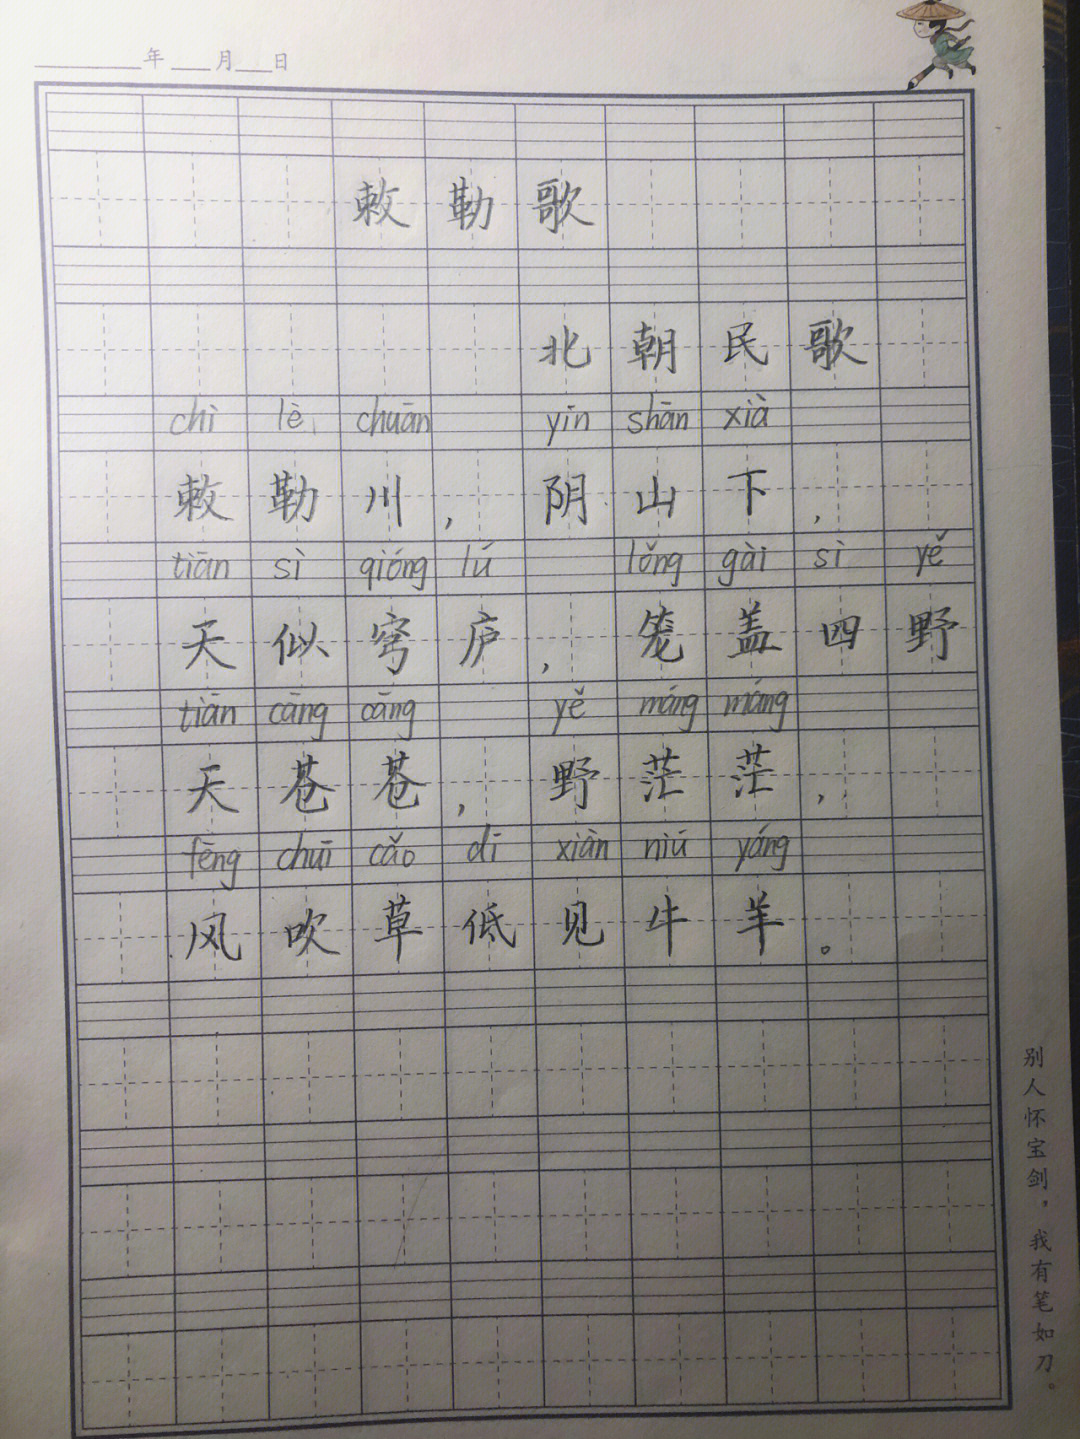 年 月 日
敕勒歌
北朝民歌
chì lè chuān yīn shān xià
敕勒川，阴山下，
tiān sì qióng lú lǒng gài sì yě
天似穹庐，笼盖四野
tiān cāng cāng yě máng máng
天苍苍，野茫茫，
fēng chuī cǎo dī xiàn niú yáng
风吹草低见牛羊。
别人怀宝剑，我有笔如刀。